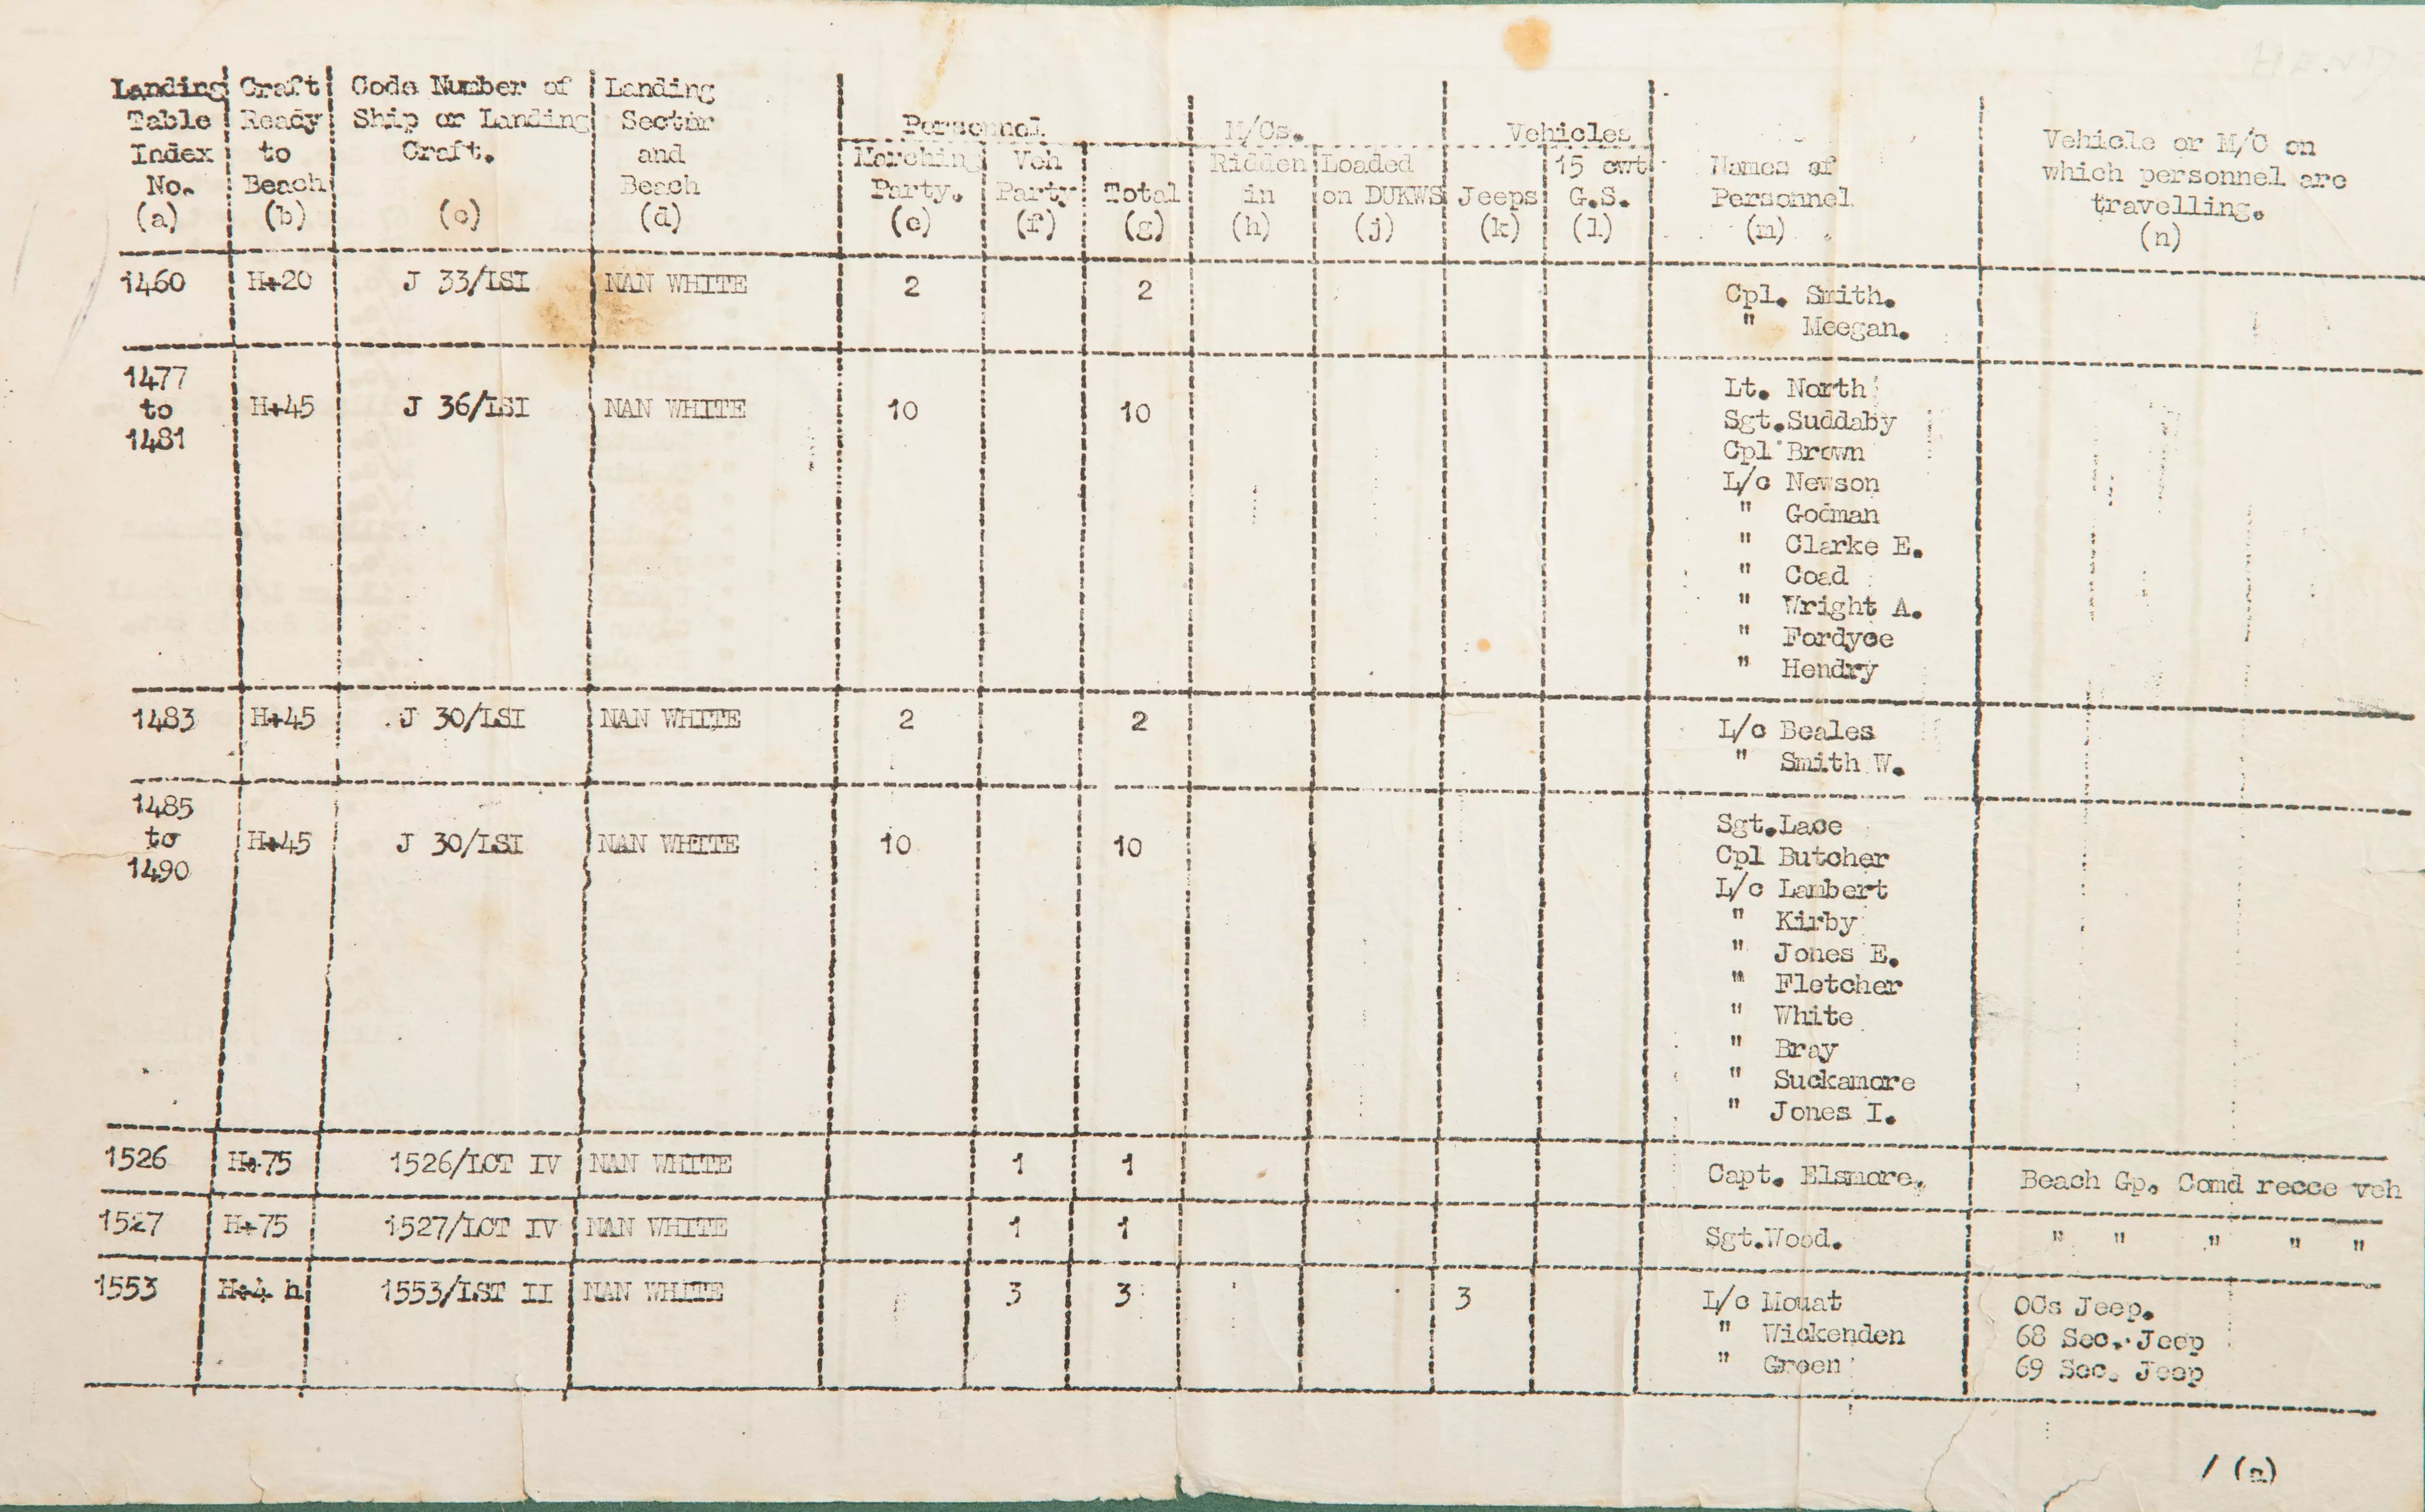 Landing Table Index No. (a)
Craft Ready to Beach (b)
Code Number of Ship or Landing Craft. (c)
Landing Sector and Beach (d)
Personnel
Marching Party. (e)
Veh Party (f)
Total (g)
M/Cs.
Ridden in (h)
Loaded on DUKWS (j)
Vehicles
Jeeps (k)
15 cwt G.S. (l)
Names of Personnel (m)
Vehicle or M/C on which personnel are travelling. (n)
1460 H+20 J 33/LSI NAN WHITE 2 2 Cpl. Smith.
" Meegan.
1477 to 1481 H+45 J 36/LSI NAN WHITE 10 10 Lt. North
Sgt. Suddaby
Cpl Brown
L/c Newson
" Godman
" Clarke E.
" Coad
" Wright A.
" Fordyce
" Hendry
1483 H+45 J 30/LSI NAN WHITE 2 2 L/c Beales
" Smith W.
1485 to 1490 H+45 J 30/LSI NAN WHITE 10 10 Sgt. Lace
Cpl Butcher
L/c Lambert
" Kirby
" Jones E.
" Fletcher
" White
" Bray
" Suckamore
" Jones I.
1526 H+75 1526/LCT IV NAN WHITE 1 1 Capt. Elsmore. Beach Gp. Comd recce veh
1527 H+75 1527/LCT IV NAN WHITE 1 1 Sgt. Wood. " " " " "
1553 H+4 h 1553/LST II NAN WHITE 3 3 3 L/c Mouat OCs Jeep.
" Wickenden 68 Sec. Jeep
" Green 69 Sec. Jeep